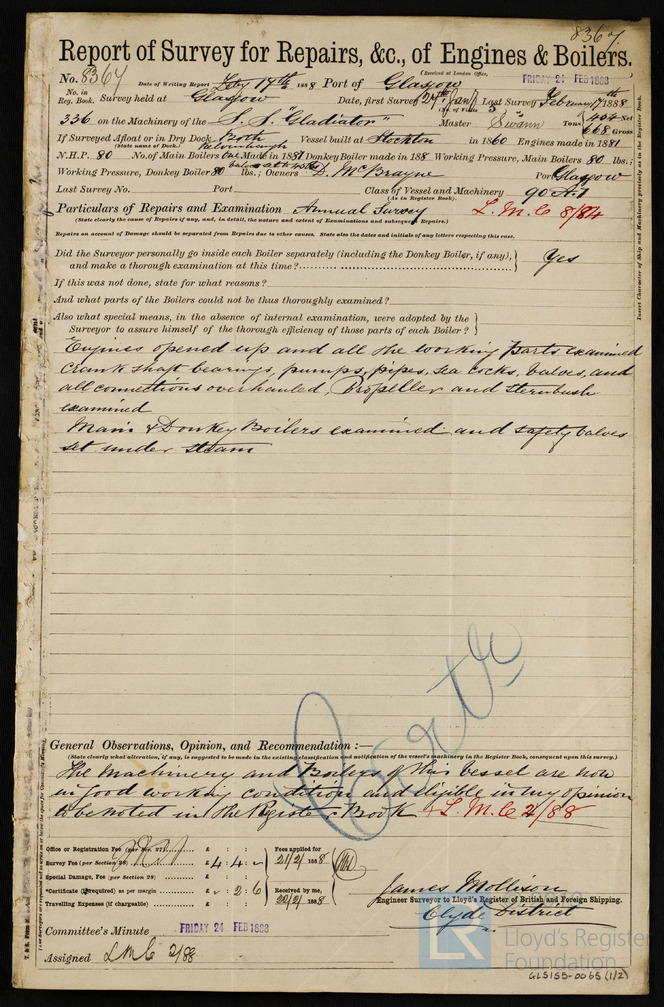 8367
Report of Survey for Repairs, &c., of Engines & Boilers.
(Received at London Office,
No. 8367 Date of Writing Report Feby 17th 1888 Port of Glasgow FRIDAY 24 FEB 1888
No. in Reg. Book. Survey held at Glasgow Date, first Survey 27th Jany Last Survey February 17th 1888
336 on the Machinery of the S. S. "Gladiator" Master Swann Tons 404 Net 668 Gross
If Surveyed Afloat or in Dry Dock Both Vessel built at Stockton in 1860 Engines made in 1881
(State name of Dock.) Kelvinhaugh
N.H.P. 80 No. of Main Boilers One Made in 1881 Donkey Boiler made in 188 Working Pressure, Main Boilers 80 lbs.;
Working Pressure, Donkey Boiler 80 lbs.; Owners D. McBrayne Port Glasgow
Last Survey No. Port Class of Vessel and Machinery 90 A.1
(As in Register Book).
Particulars of Repairs and Examination Annual Survey L. M. C 8/84
(State clearly the cause of Repairs if any, and, in detail, the nature and extent of Examinations and subsequent Repairs.)
Repairs on account of Damage should be separated from Repairs due to other causes. State also the dates and initials of any letters respecting this case.
Did the Surveyor personally go inside each Boiler separately (including the Donkey Boiler, if any), and make a thorough examination at this time? Yes
If this was not done, state for what reasons?
And what parts of the Boilers could not be thus thoroughly examined?
Also what special means, in the absence of internal examination, were adopted by the
Surveyor to assure himself of the thorough efficiency of those parts of each Boiler?
Engines opened up and all the working parts examined
Crank shaft bearings, pumps, pipes, sea cocks, valves, and
all connections overhauled, Propeller and sternbush
examined
Main & Donkey Boilers examined and safety valves
set under steam
General Observations, Opinion, and Recommendation :—
(State clearly what alteration, if any, is suggested to be made in the existing classification and notification of the vessel's machinery in the Register Book, consequent upon this survey.)
The Machinery and Boilers of this vessel are now
in good working condition and eligible in my opinion
to be noted in the Register Book + L. M. C 2/88
Office or Registration Fee (per Sec. 27)
Survey Fee (per Section 28) £ 4 : 4 :
Special Damage, Fee (per Section 28) £ : :
*Certificate (if required) as per margin £ : 2 : 6
Travelling Expenses (if chargeable) £ : :
Fees applied for
21/2/ 1888
Received by me,
22/2/ 1888
James Mollison
Engineer Surveyor to Lloyd's Register of British and Foreign Shipping.
Clyde District
Committee's Minute FRIDAY 24 FEB 1888
Assigned L M C 2/88
Insert Character of Ship and Machinery precisely as in the Register Book.
LR
Lloyd's Register
Foundation
GLS155-0065 (1/2)